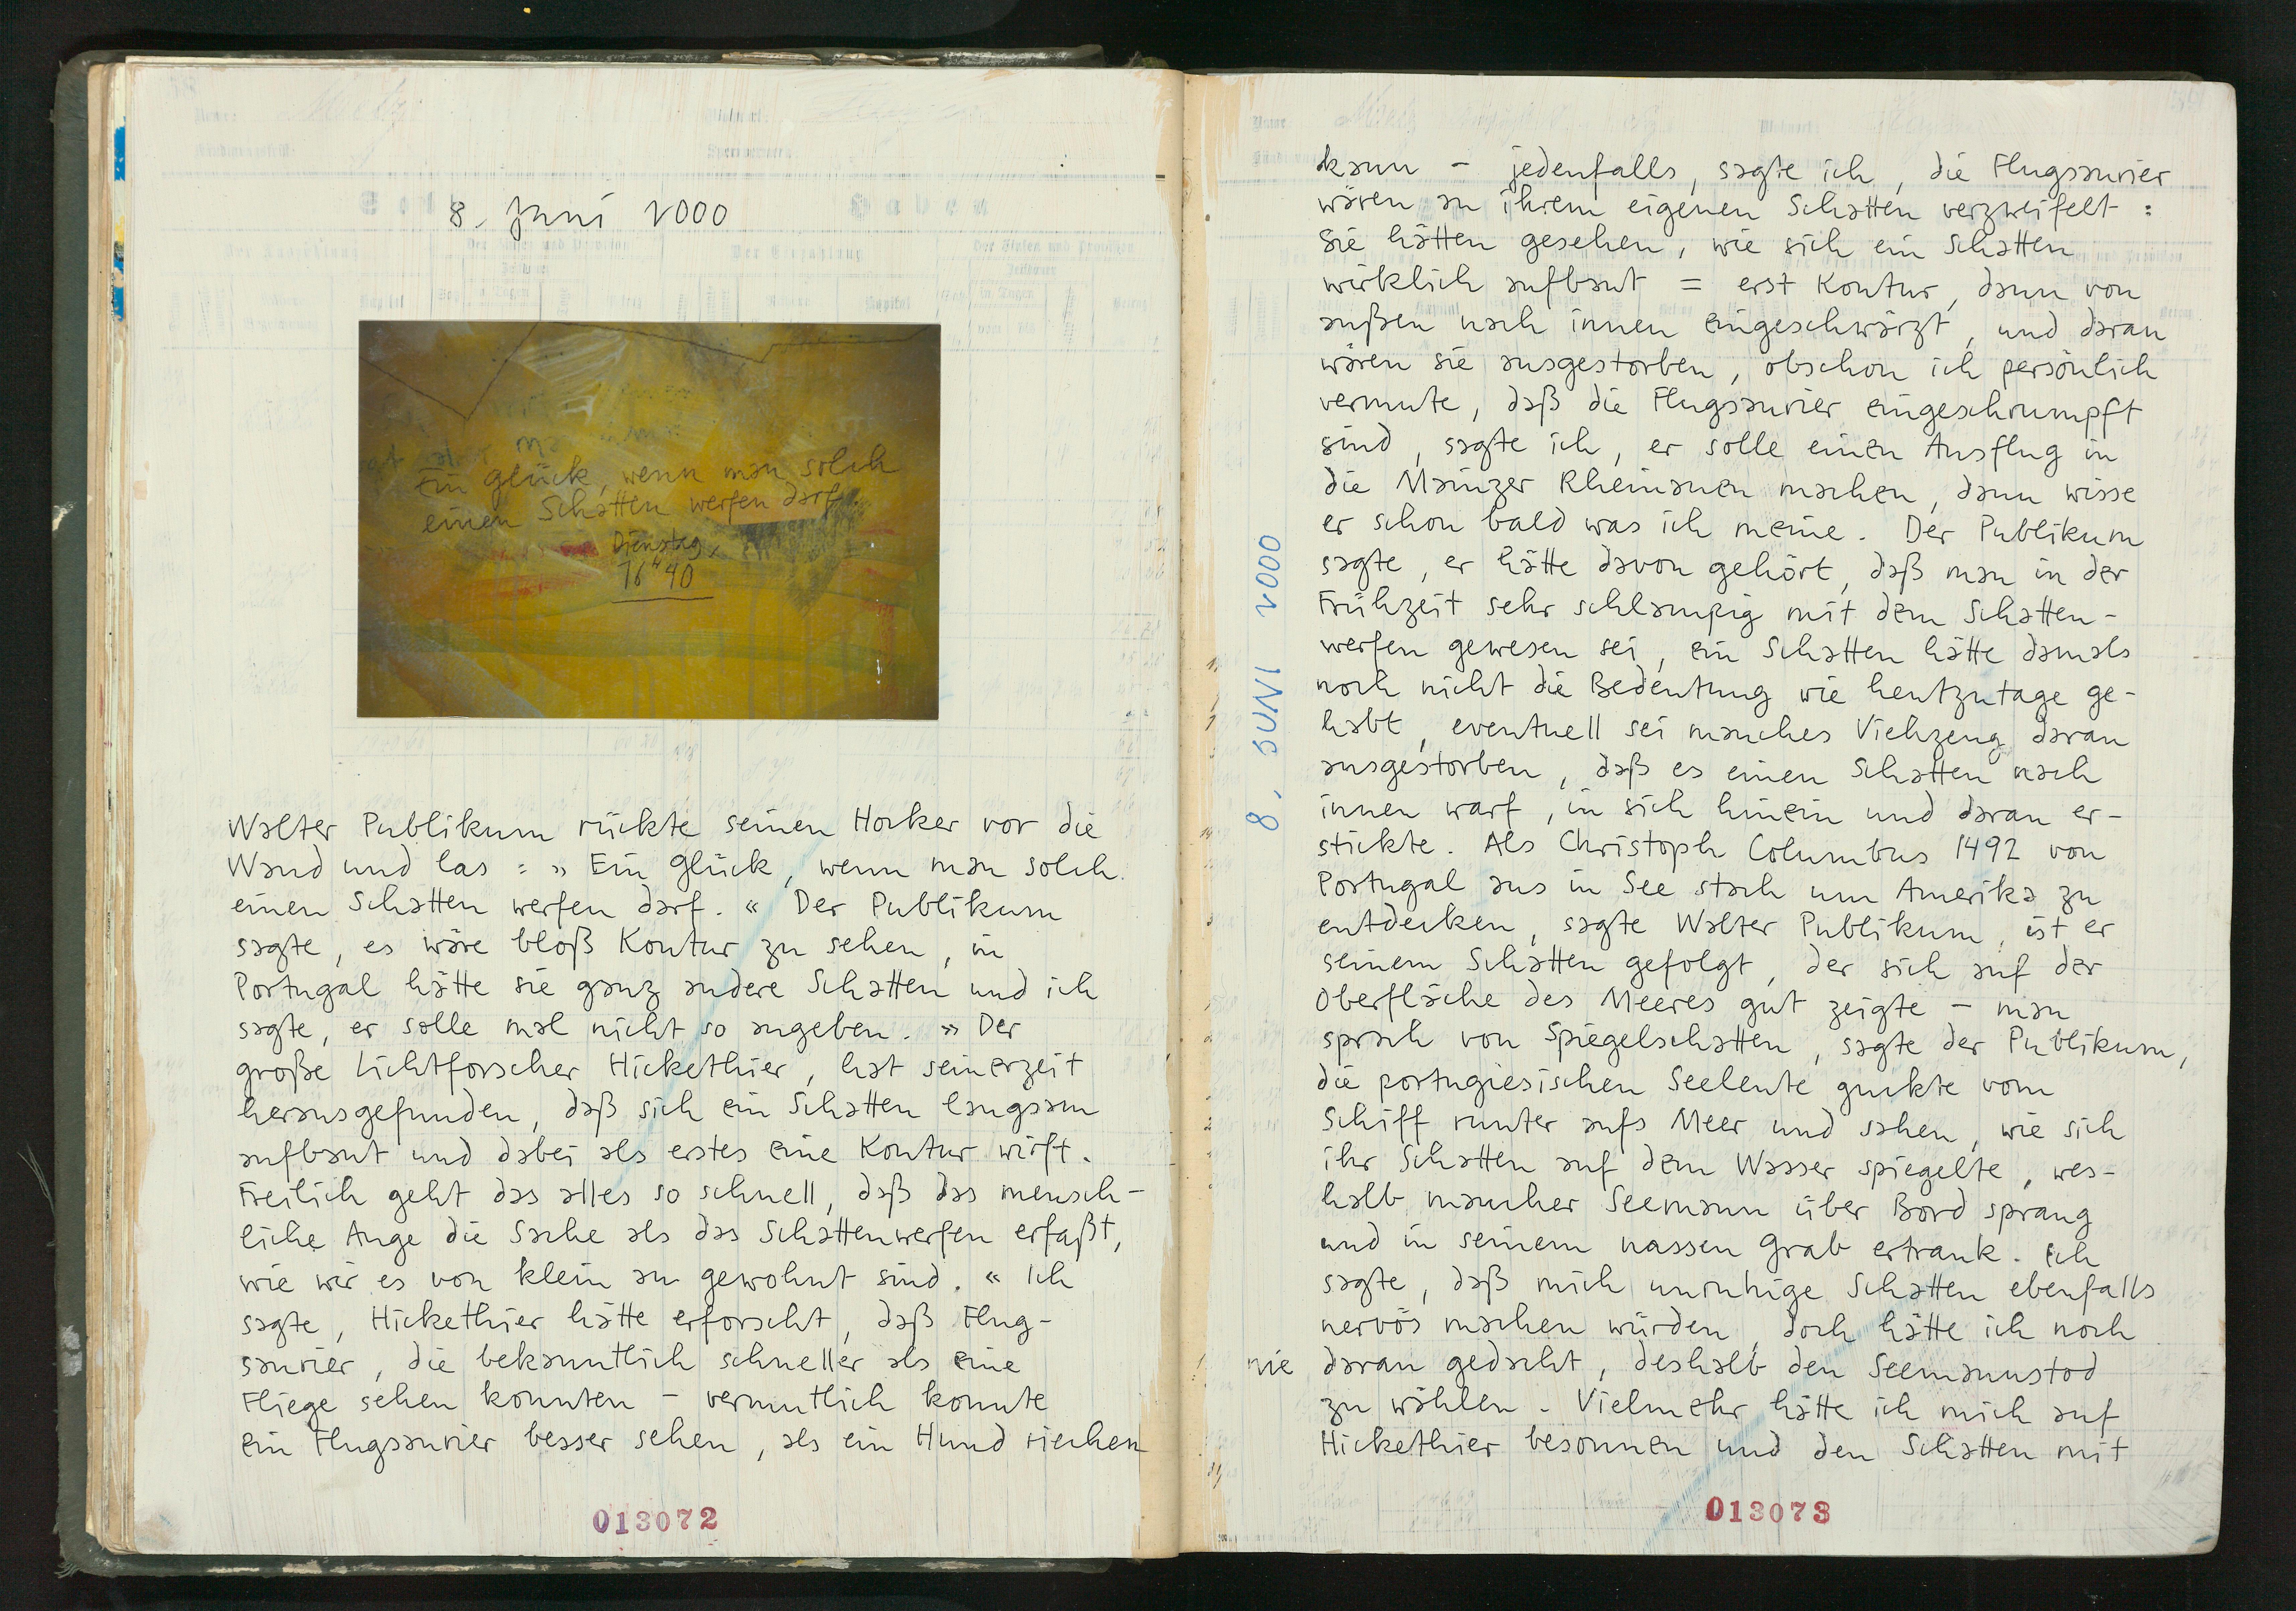 8. Juni 2000
Ein Glück, wenn man solch
einen Schatten werfen darf.
Dienstag,
16"40
Walter Publikum rückte seinen Hocker vor die
Wand und las : » Ein Glück, wenn man solch
einen Schatten werfen darf. « Der Publikum
sagte, es wäre bloß Kontur zu sehen, in
Portugal hätte sie ganz andere Schatten und ich
sagte, er solle mal nicht so angeben. » Der
große Lichtforscher Hickethier, hat seinerzeit
herausgefunden, daß sich ein Schatten langsam
aufbaut und dabei als erstes eine Kontur wirft.
Freilich geht das alles so schnell, daß das mensch-
liche Auge die Sache als das Schattenwerfen erfaßt,
wie wir es von klein an gewohnt sind. « Ich
sagte, Hickethier hätte erforscht, daß Flug-
saurier, die bekanntlich schneller als eine
Fliege sehen konnten – vermutlich konnte
ein Flugsaurier besser sehen, als ein Hund riechen
013072
8. JUNI 2000
kann – jedenfalls, sagte ich, die Flugsaurier
wären an ihrem eigenen Schatten verzweifelt :
Sie hätten gesehen, wie sich ein Schatten
wirklich aufbaut = erst Kontur, dann von
außen nach innen eingeschwärzt, und daran
wären sie ausgestorben, obschon ich persönlich
vermute, daß die Flugsaurier eingeschrumpft
sind, sagte ich, er solle einen Ausflug in
die Mainzer Rheinauen machen, dann wisse
er schon bald was ich meine. Der Publikum
sagte, er hätte davon gehört, daß man in der
Frühzeit sehr schlampig mit dem Schatten-
werfen gewesen sei, ein Schatten hätte damals
noch nicht die Bedeutung wie heutzutage ge-
habt, eventuell sei manches Viehzeug daran
ausgestorben, daß es einen Schatten nach
innen warf, in sich hinein und daran er-
stickte. Als Christoph Columbus 1492 von
Portugal aus in See stach um Amerika zu
entdecken, sagte Walter Publikum, ist er
seinem Schatten gefolgt, der sich auf der
Oberfläche des Meeres gut zeigte – man
sprach von Spiegelschatten, sagte der Publikum,
die portugiesischen Seeleute guckte vom
Schiff runter aufs Meer und sahen, wie sich
ihr Schatten auf dem Wasser spiegelte, wes-
halb mancher Seemann über Bord sprang
und in seinem nassen Grab ertrank. Ich
sagte, daß mich unruhige Schatten ebenfalls
nervös machen würden, doch hätte ich noch
nie daran gedacht, deshalb den Seemannstod
zu wählen. Vielmehr hätte ich mich auf
Hickethier besonnen und den Schatten mit
013073